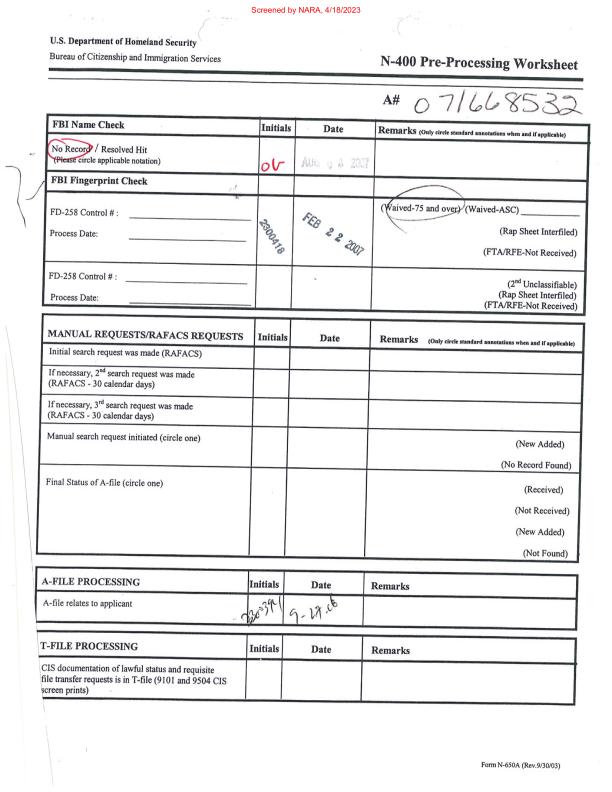 Screened by NARA, 4/18/2023
U.S. Department of Homeland Security
Bureau of Citizenship and Immigration Services
N-400 Pre-Processing Worksheet
A# 071668532
FBI Name Check Initials Date Remarks (Only circle standard annotations when and if applicable)
No Record / Resolved Hit
(Please circle applicable notation)
AUG 02 2007
FBI Fingerprint Check
FD-258 Control # :
Process Date:
2300418
FEB 22 2007
(Waived-75 and over) (Waived-ASC)
(Rap Sheet Interfiled)
(FTA/RFE-Not Received)
FD-258 Control # :
Process Date:
(2nd Unclassifiable)
(Rap Sheet Interfiled)
(FTA/RFE-Not Received)
MANUAL REQUESTS/RAFACS REQUESTS Initials Date Remarks (Only circle standard annotations when and if applicable)
Initial search request was made (RAFACS)
If necessary, 2nd search request was made
(RAFACS - 30 calendar days)
If necessary, 3rd search request was made
(RAFACS - 30 calendar days)
Manual search request initiated (circle one)
(New Added)
(No Record Found)
Final Status of A-file (circle one)
(Received)
(Not Received)
(New Added)
(Not Found)
A-FILE PROCESSING Initials Date Remarks
A-file relates to applicant
T-FILE PROCESSING Initials Date Remarks
CIS documentation of lawful status and requisite
file transfer requests is in T-file (9101 and 9504 CIS
screen prints)
Form N-650A (Rev.9/30/03)